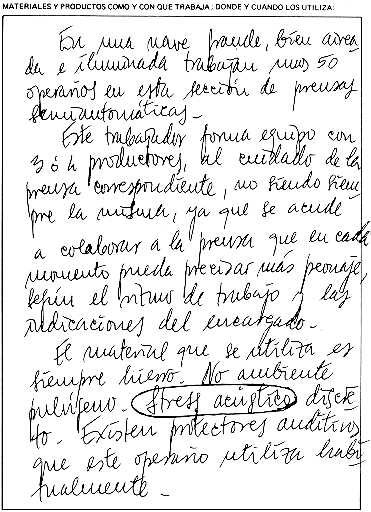 MATERIALES Y PRODUCTOS COMO Y CON QUE TRABAJA; DONDE Y CUANDO LOS UTILIZA:
En una nave grande, bien airea
da e iluminada trabajan unos 50
operarios en esta sección de prensas
semiautomáticas.
Este trabajador forma equipo con
3 ó 4 productores, al cuidado de la
prensa correspondiente, no siendo siem
pre la misma, ya que se acude
a colaborar a la prensa que en cada
momento pueda precisar más peonaje,
según el ritmo de trabajo y las
indicaciones del encargado.
El material que se utiliza es
siempre hierro. No ambiente
pulvígeno. Stress acústico discre
to. Existen protectores auditivos
que este operario utiliza habi
tualmente.